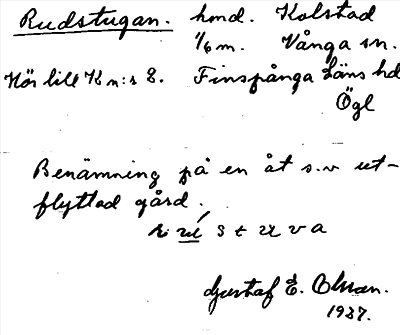 Rudstugan. hmd. Kolstad
1/6 m. Vånga sn.
Hör till K n:s 8. Finspånga läns hd
Ögl
Benämning på en åt s.v ut-
flyttad gård.
Gustaf E. Olsson.
1937.